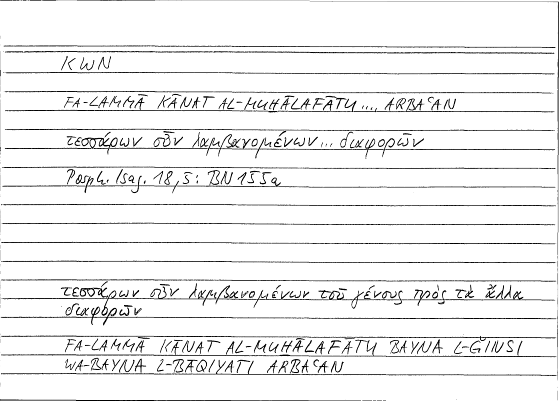 KWN
FA-LAMMĀ KĀNAT AL-MUḪĀLAFĀTU ... ARBAʿAN
τεσσάρων οὖν λαμβανομένων ... διαφορῶν
Porph. Isag. 18,5: BN 155a
τεσσάρων οὖν λαμβανομένων τοῦ γένους πρὸς τὰ ἄλλα
διαφορῶν
FA-LAMMĀ KĀNAT AL-MUḪĀLAFĀTU BAYNA L-ǦINSI
WA-BAYNA L-BĀQIYATI ARBAʿAN